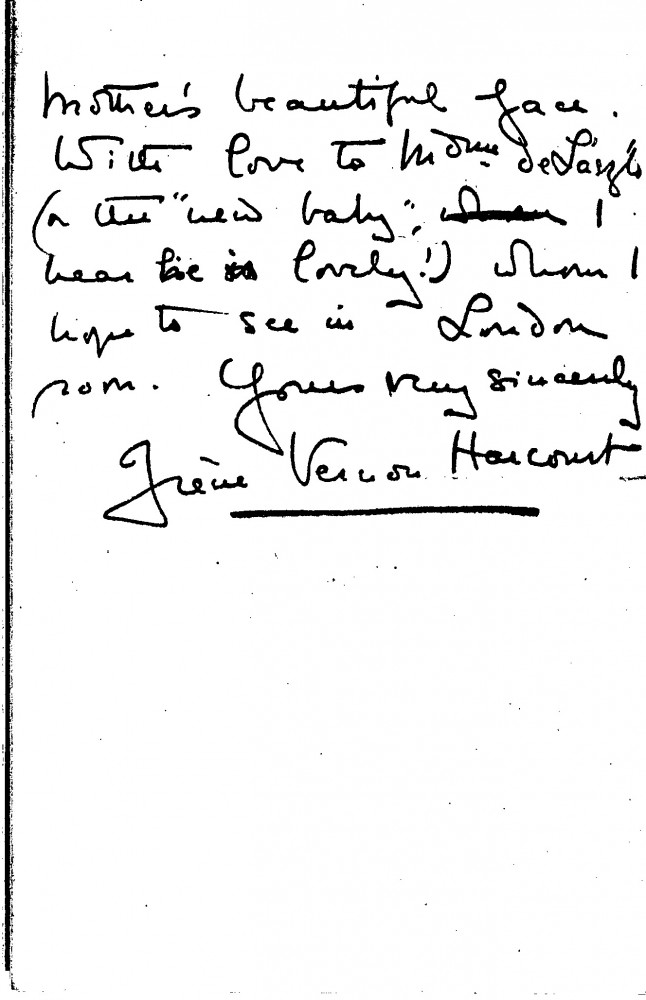 Mother's beautiful face.
With love to Mdme de László
(& the "new baby", whom I
hear is lovely!) whom I
hope to see in London
soon. Yours very sincerely
Irène Vernon Harcourt